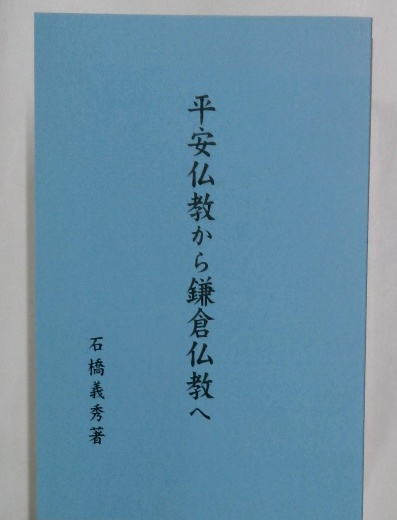 平安仏教から鎌倉仏教へ
石橋義秀著